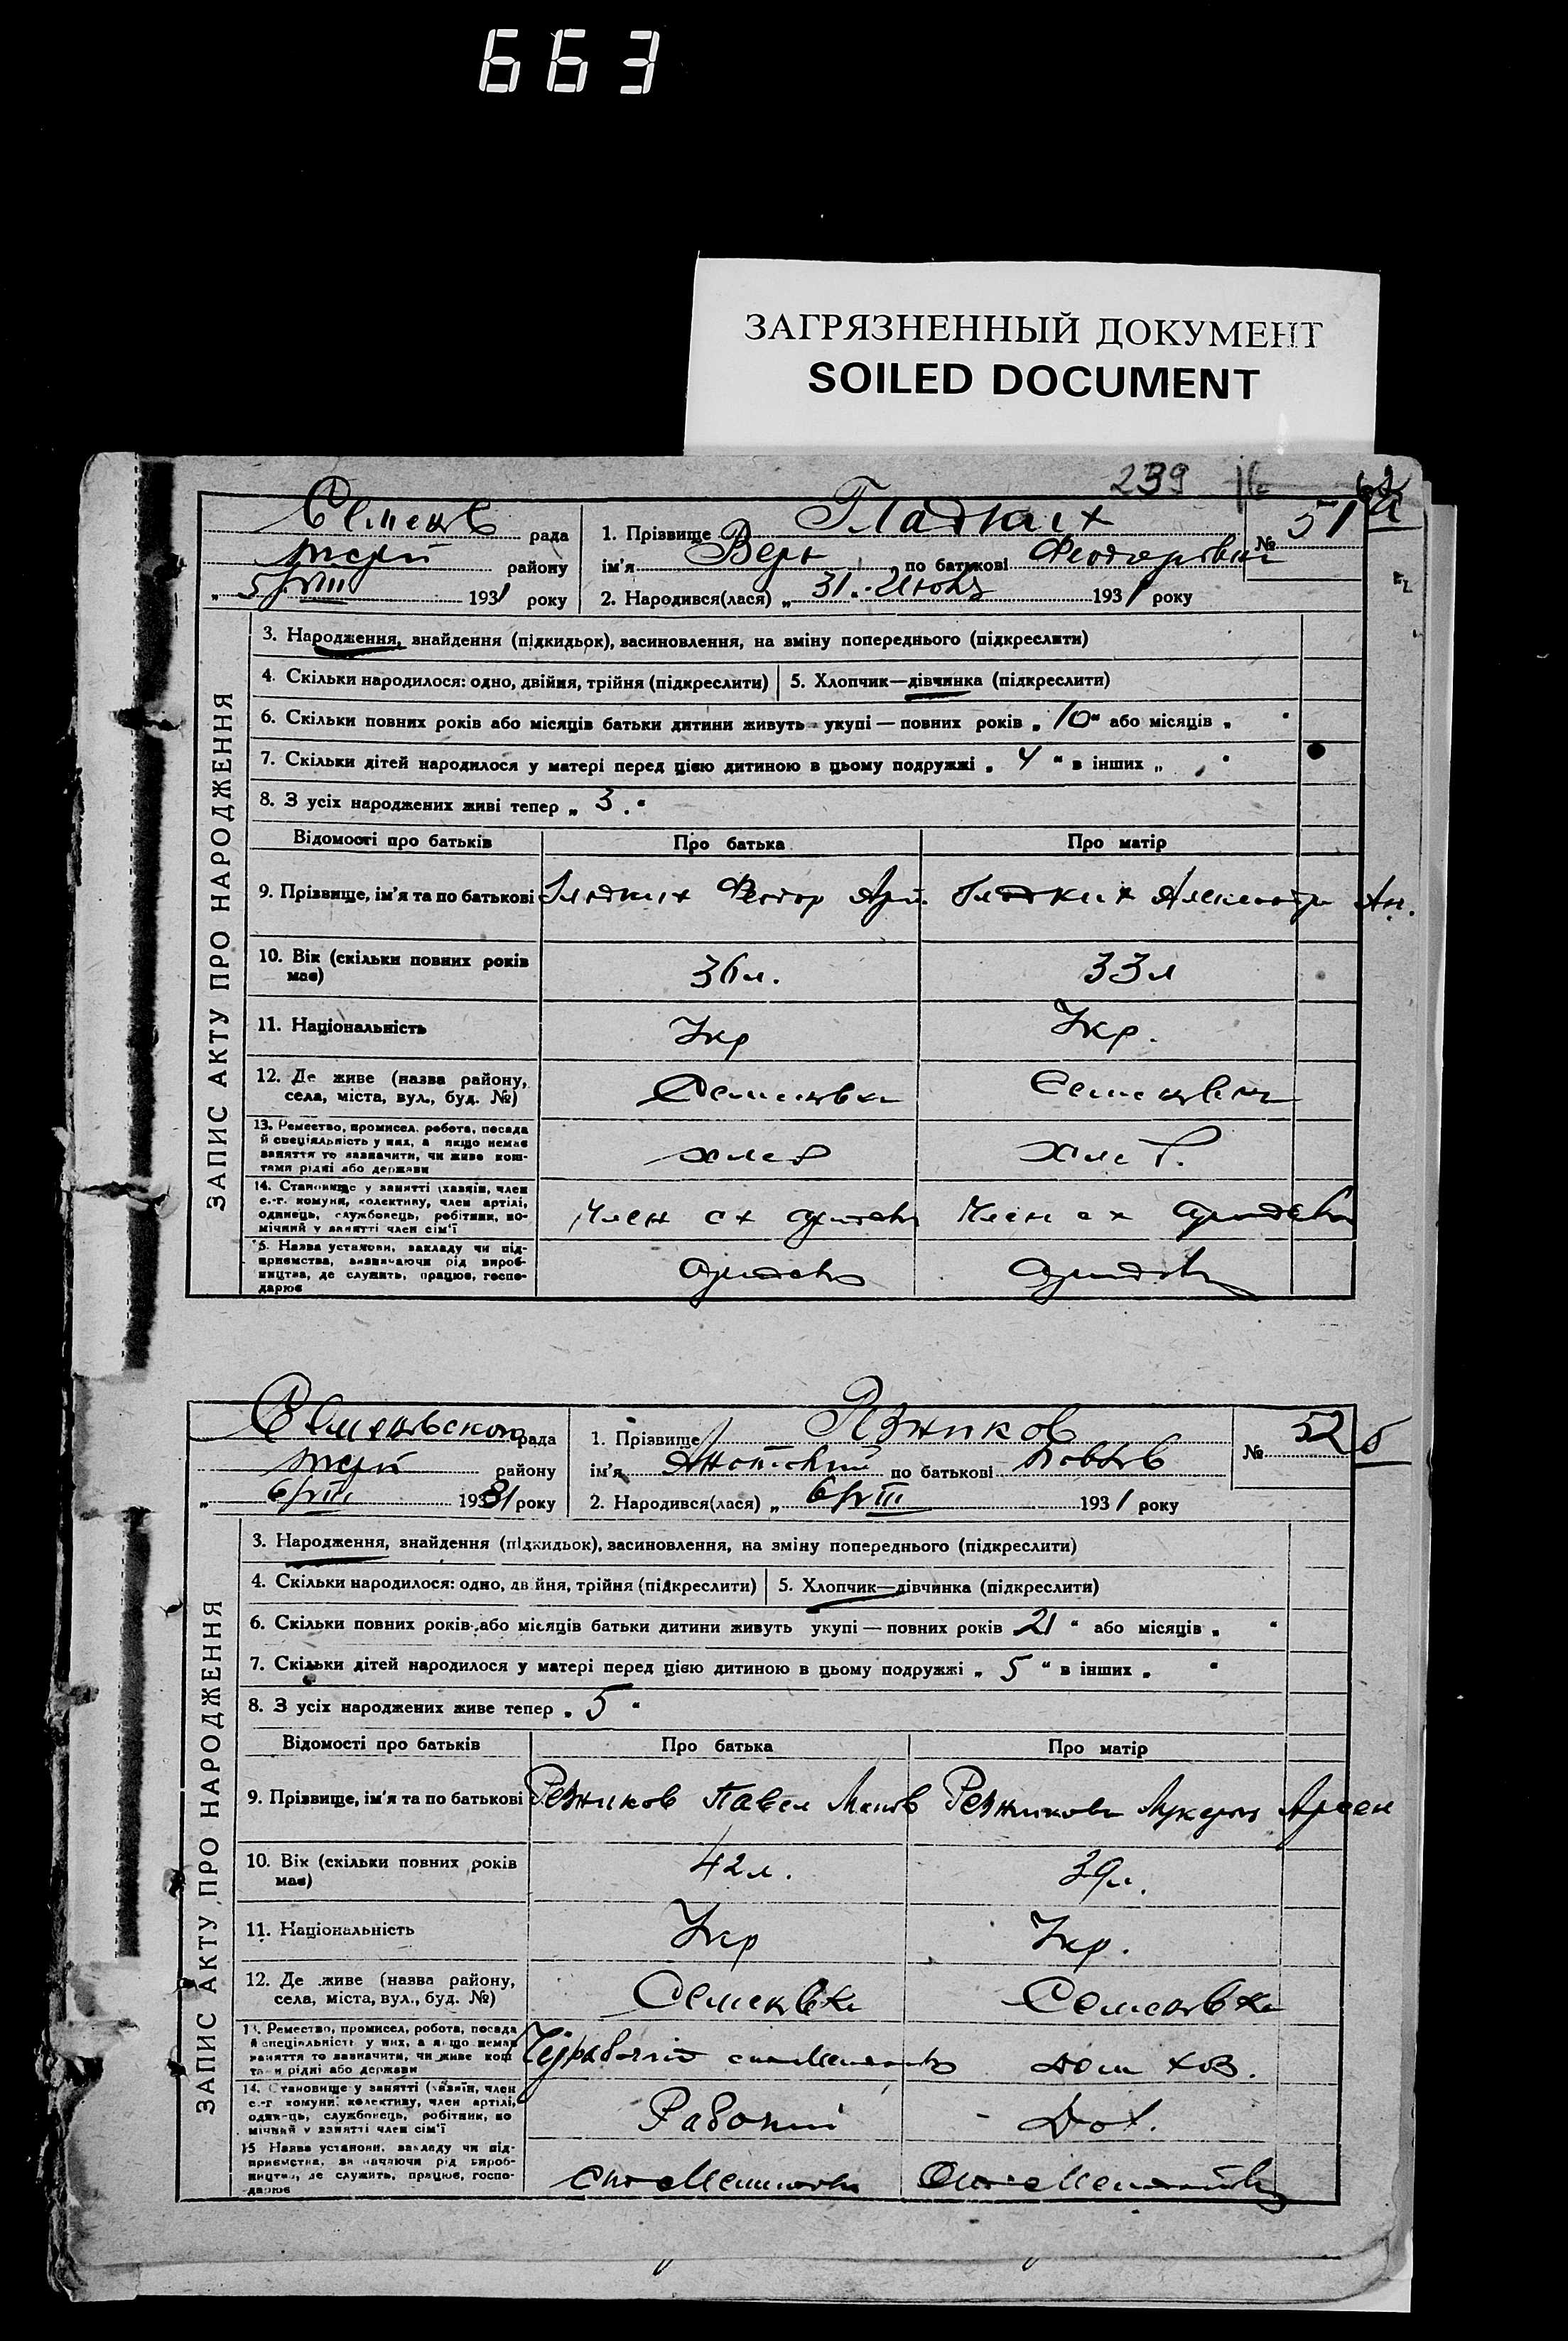 663
ЗАГРЯЗНЕННЫЙ ДОКУМЕНТ
SOILED DOCUMENT
239
ЗАПИС АКТУ ПРО НАРОДЖЕННЯ
Семенов рада
району
5/VIII 1931 року
1. Прізвище Гладких
ім'я Вера по батькові Феодоровна
№ 51
2. Народився(лася) „31" Июля 1931 року
3. Народження, знайдення (підкидьок), засиновлення, на зміну попереднього (підкреслити)
4. Скільки народилося: одно, двійня, трійня (підкреслити) 5. Хлопчик—дівчинка (підкреслити)
6. Скільки повних років або місяців батьки дитини живуть укупі — повних років „10" або місяців „ "
7. Скільки дітей народилося у матері перед цією дитиною в цьому подружжі „4" в інших „ "
8. З усіх народжених живі тепер „3"
Відомості про батьків Про батька Про матір
9. Прізвище, ім'я та по батькові Гладких Феодор Гладких Александра Ан.
10. Вік (скільки повних років має) 36 л. 33 л
11. Національність Укр Укр.
12. Де живе (назва району, села, міста, вул., буд. №) Семеновка Семеновка
13. Ремество, промисел, робота, посада й спеціяльність у них, а якщо немає заняття то зазначити, чи живе коштами рідні або держави хлеб хлеб.
14. Становище у занятті (хазяїн, член с.-г. комуни, колективу, член артілі, одинець, службовець, робітник, помічний у занятті член сім'ї Член с х артели Член с х артели
15. Назва установи, закладу чи підприємства, визначаючи рід виробництва, де служить, працює, господарює
ЗАПИС АКТУ ПРО НАРОДЖЕННЯ
Семеновского рада
району
6/VIII 1931 року
1. Прізвище Резников
ім'я Анатолий по батькові Павлов
№ 52
2. Народився(лася) „6/VIII 1931 року
3. Народження, знайдення (підкидьок), засиновлення, на зміну попереднього (підкреслити)
4. Скільки народилося: одно, двійня, трійня (підкреслити) 5. Хлопчик—дівчинка (підкреслити)
6. Скільки повних років або місяців батьки дитини живуть укупі — повних років 21 " або місяців „ "
7. Скільки дітей народилося у матері перед цією дитиною в цьому подружжі „5" в інших „ "
8. З усіх народжених живе тепер „5"
Відомості про батьків Про батька Про матір
9. Прізвище, ім'я та по батькові Резников Павел Резникова Арсен
10. Вік (скільки повних років має) 42 л. 39 л.
11. Національність Укр Укр.
12. Де живе (назва району, села, міста, вул., буд. №) Семеновка Семеновка
13. Ремество, промисел, робота, посада й спеціяльність у них, а якщо немає заняття то зазначити, чи живе коштами рідні або держави Дом хоз.
14. Становище у занятті (хазяїн, член с.-г. комуни, колективу, член артілі, одинець, службовець, робітник, помічний у занятті член сім'ї Рабочий
15 Назва установи, закладу чи підприємства, визначаючи рід виробництва, де служить, працює, господарює